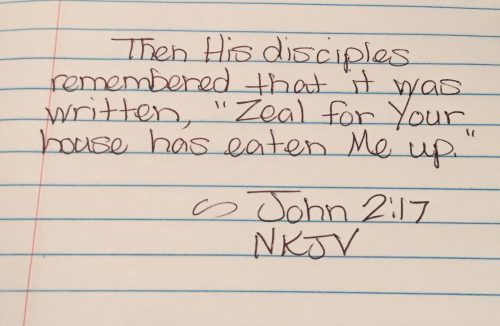 Then His disciples
remembered that it was
written, "Zeal for Your
house has eaten Me up."
~ John 2:17
NKJV